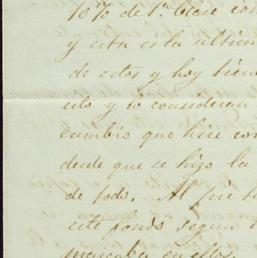 10% de 1ª clase con
y esta es la última
de estos y hoy tiene
esto y lo consideran
cambio que hice con
desde que se hizo la
de todo. Al fué
este fondo segun
marcaba en ellos.